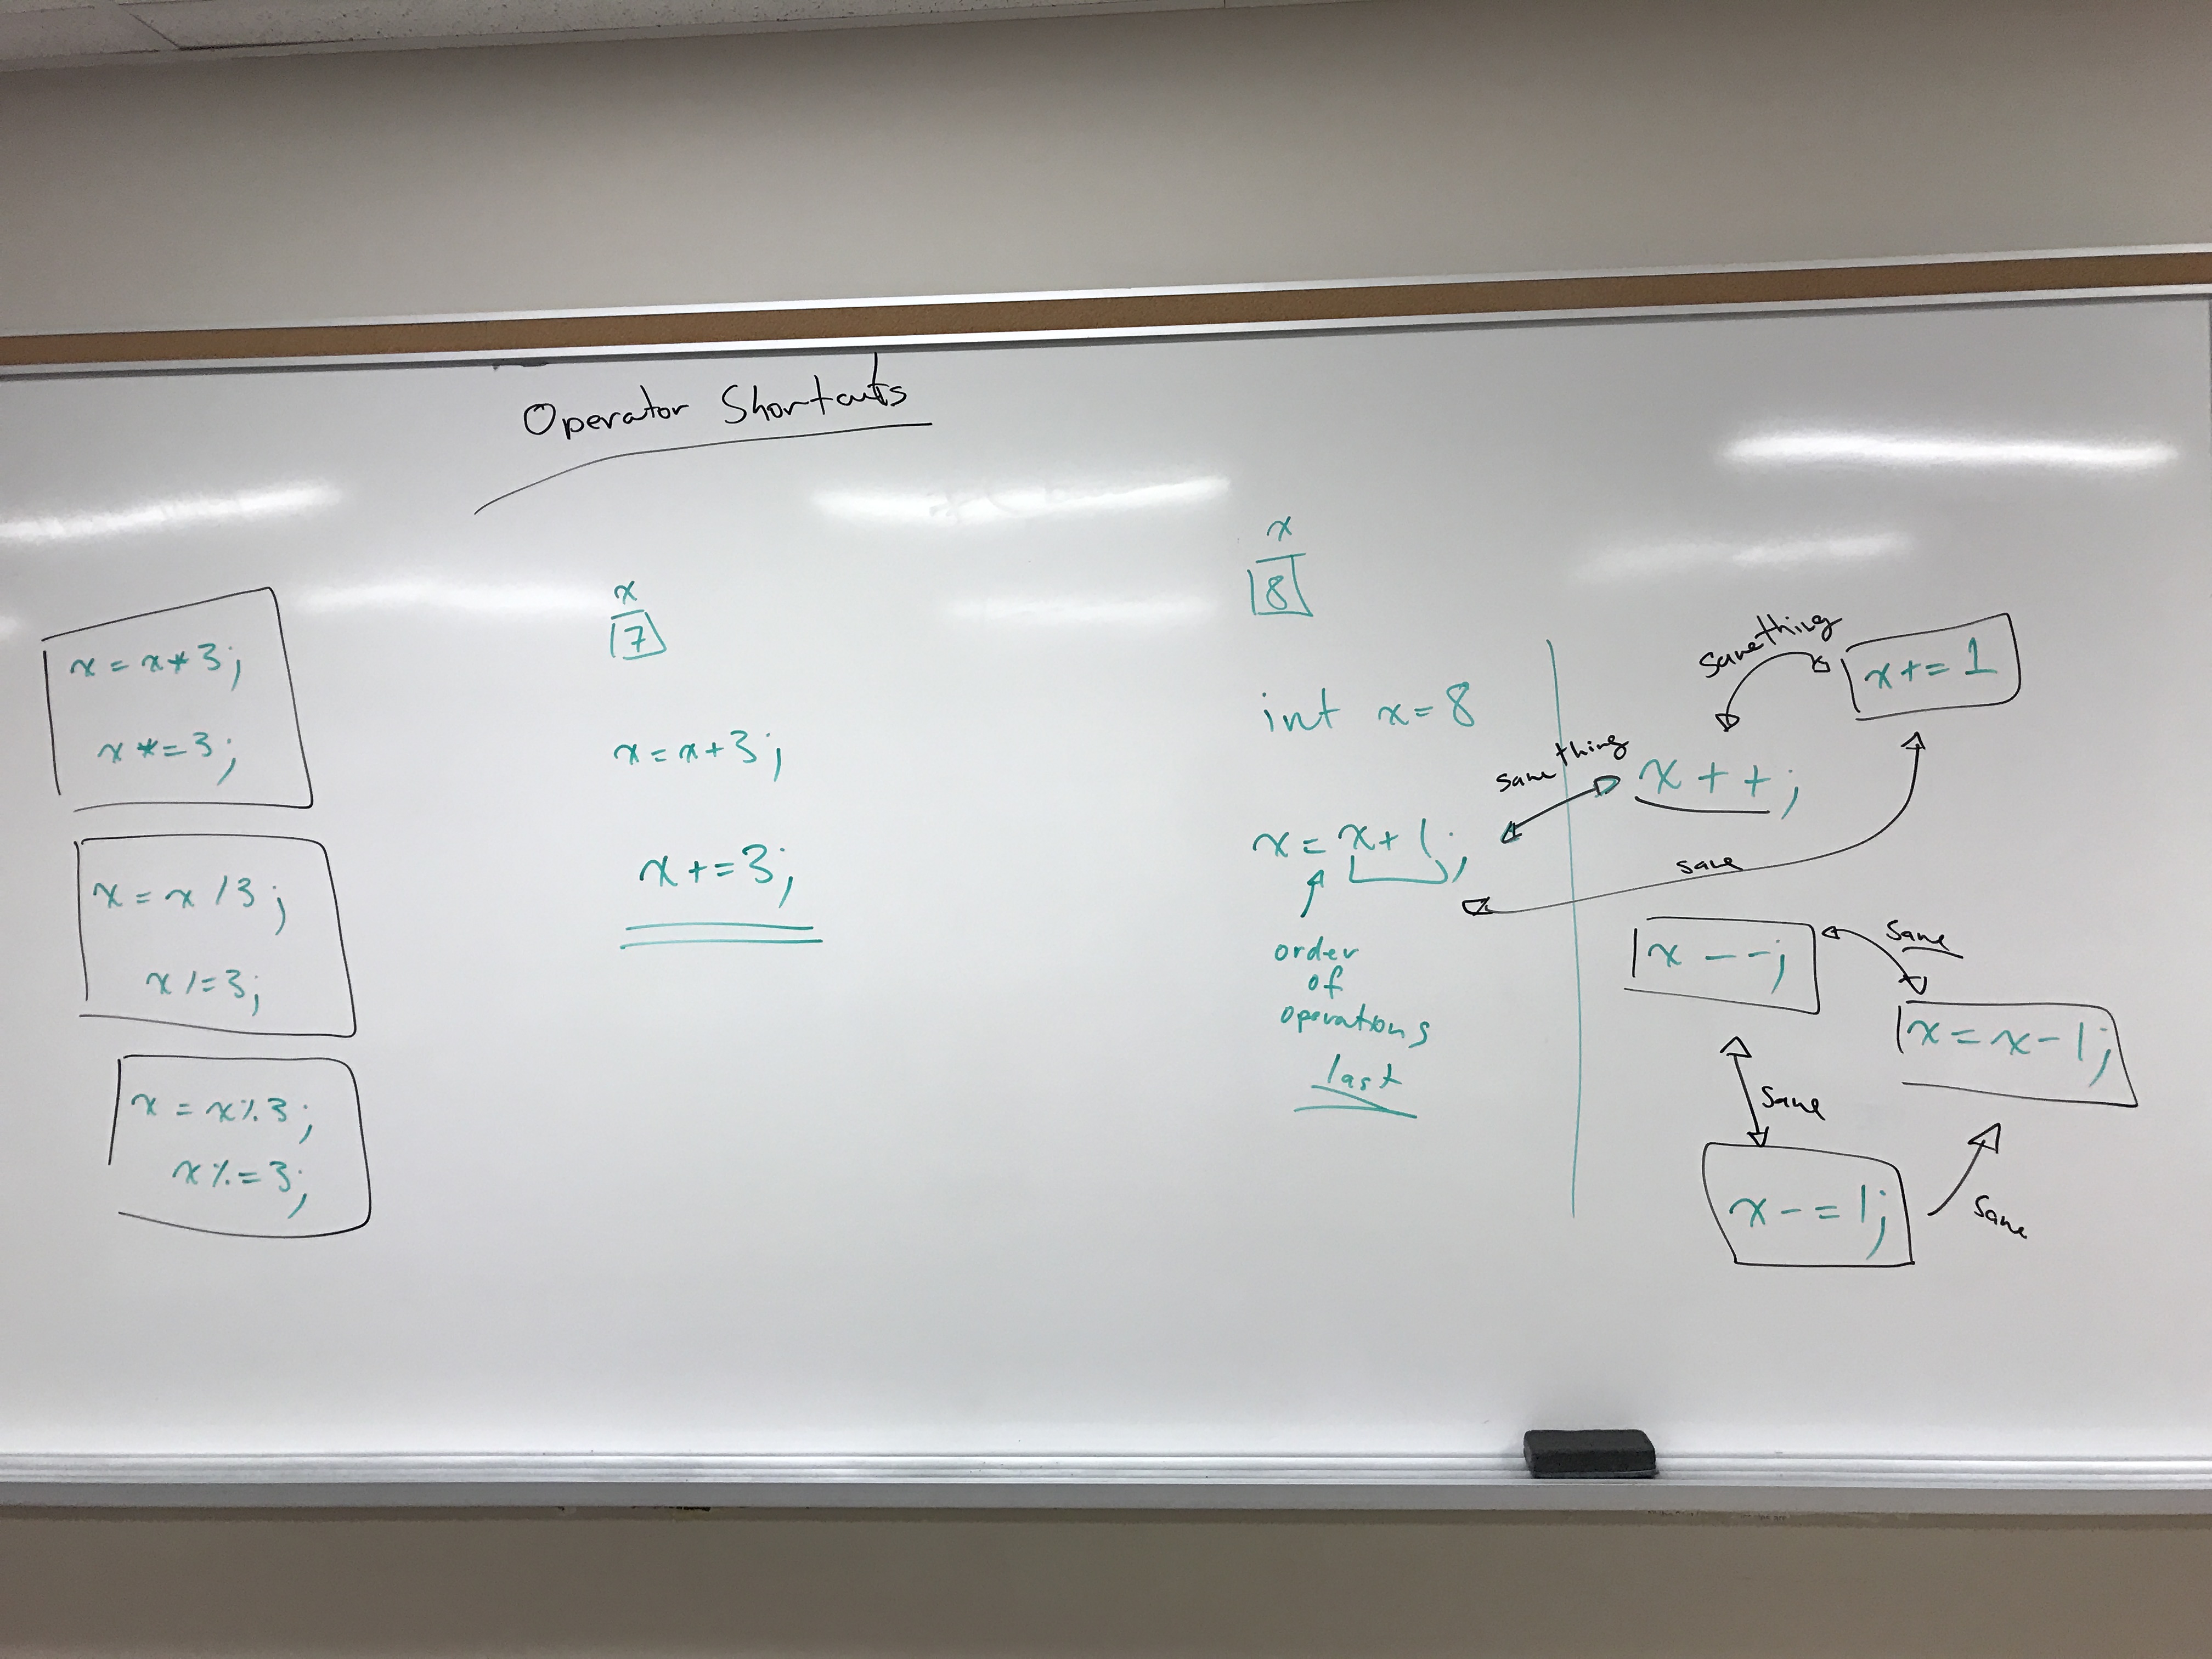 Operator Shortcuts
x = x * 3;
x *= 3;
x = x / 3;
x /= 3;
x = x % 3;
x %= 3;
x
7
x = x + 3;
x += 3;
x
8
int x = 8
x = x + 1;
order
of
operations
last
same thing
same thing
same
x += 1
x ++;
x --;
same
x = x - 1;
same
x -= 1;
same